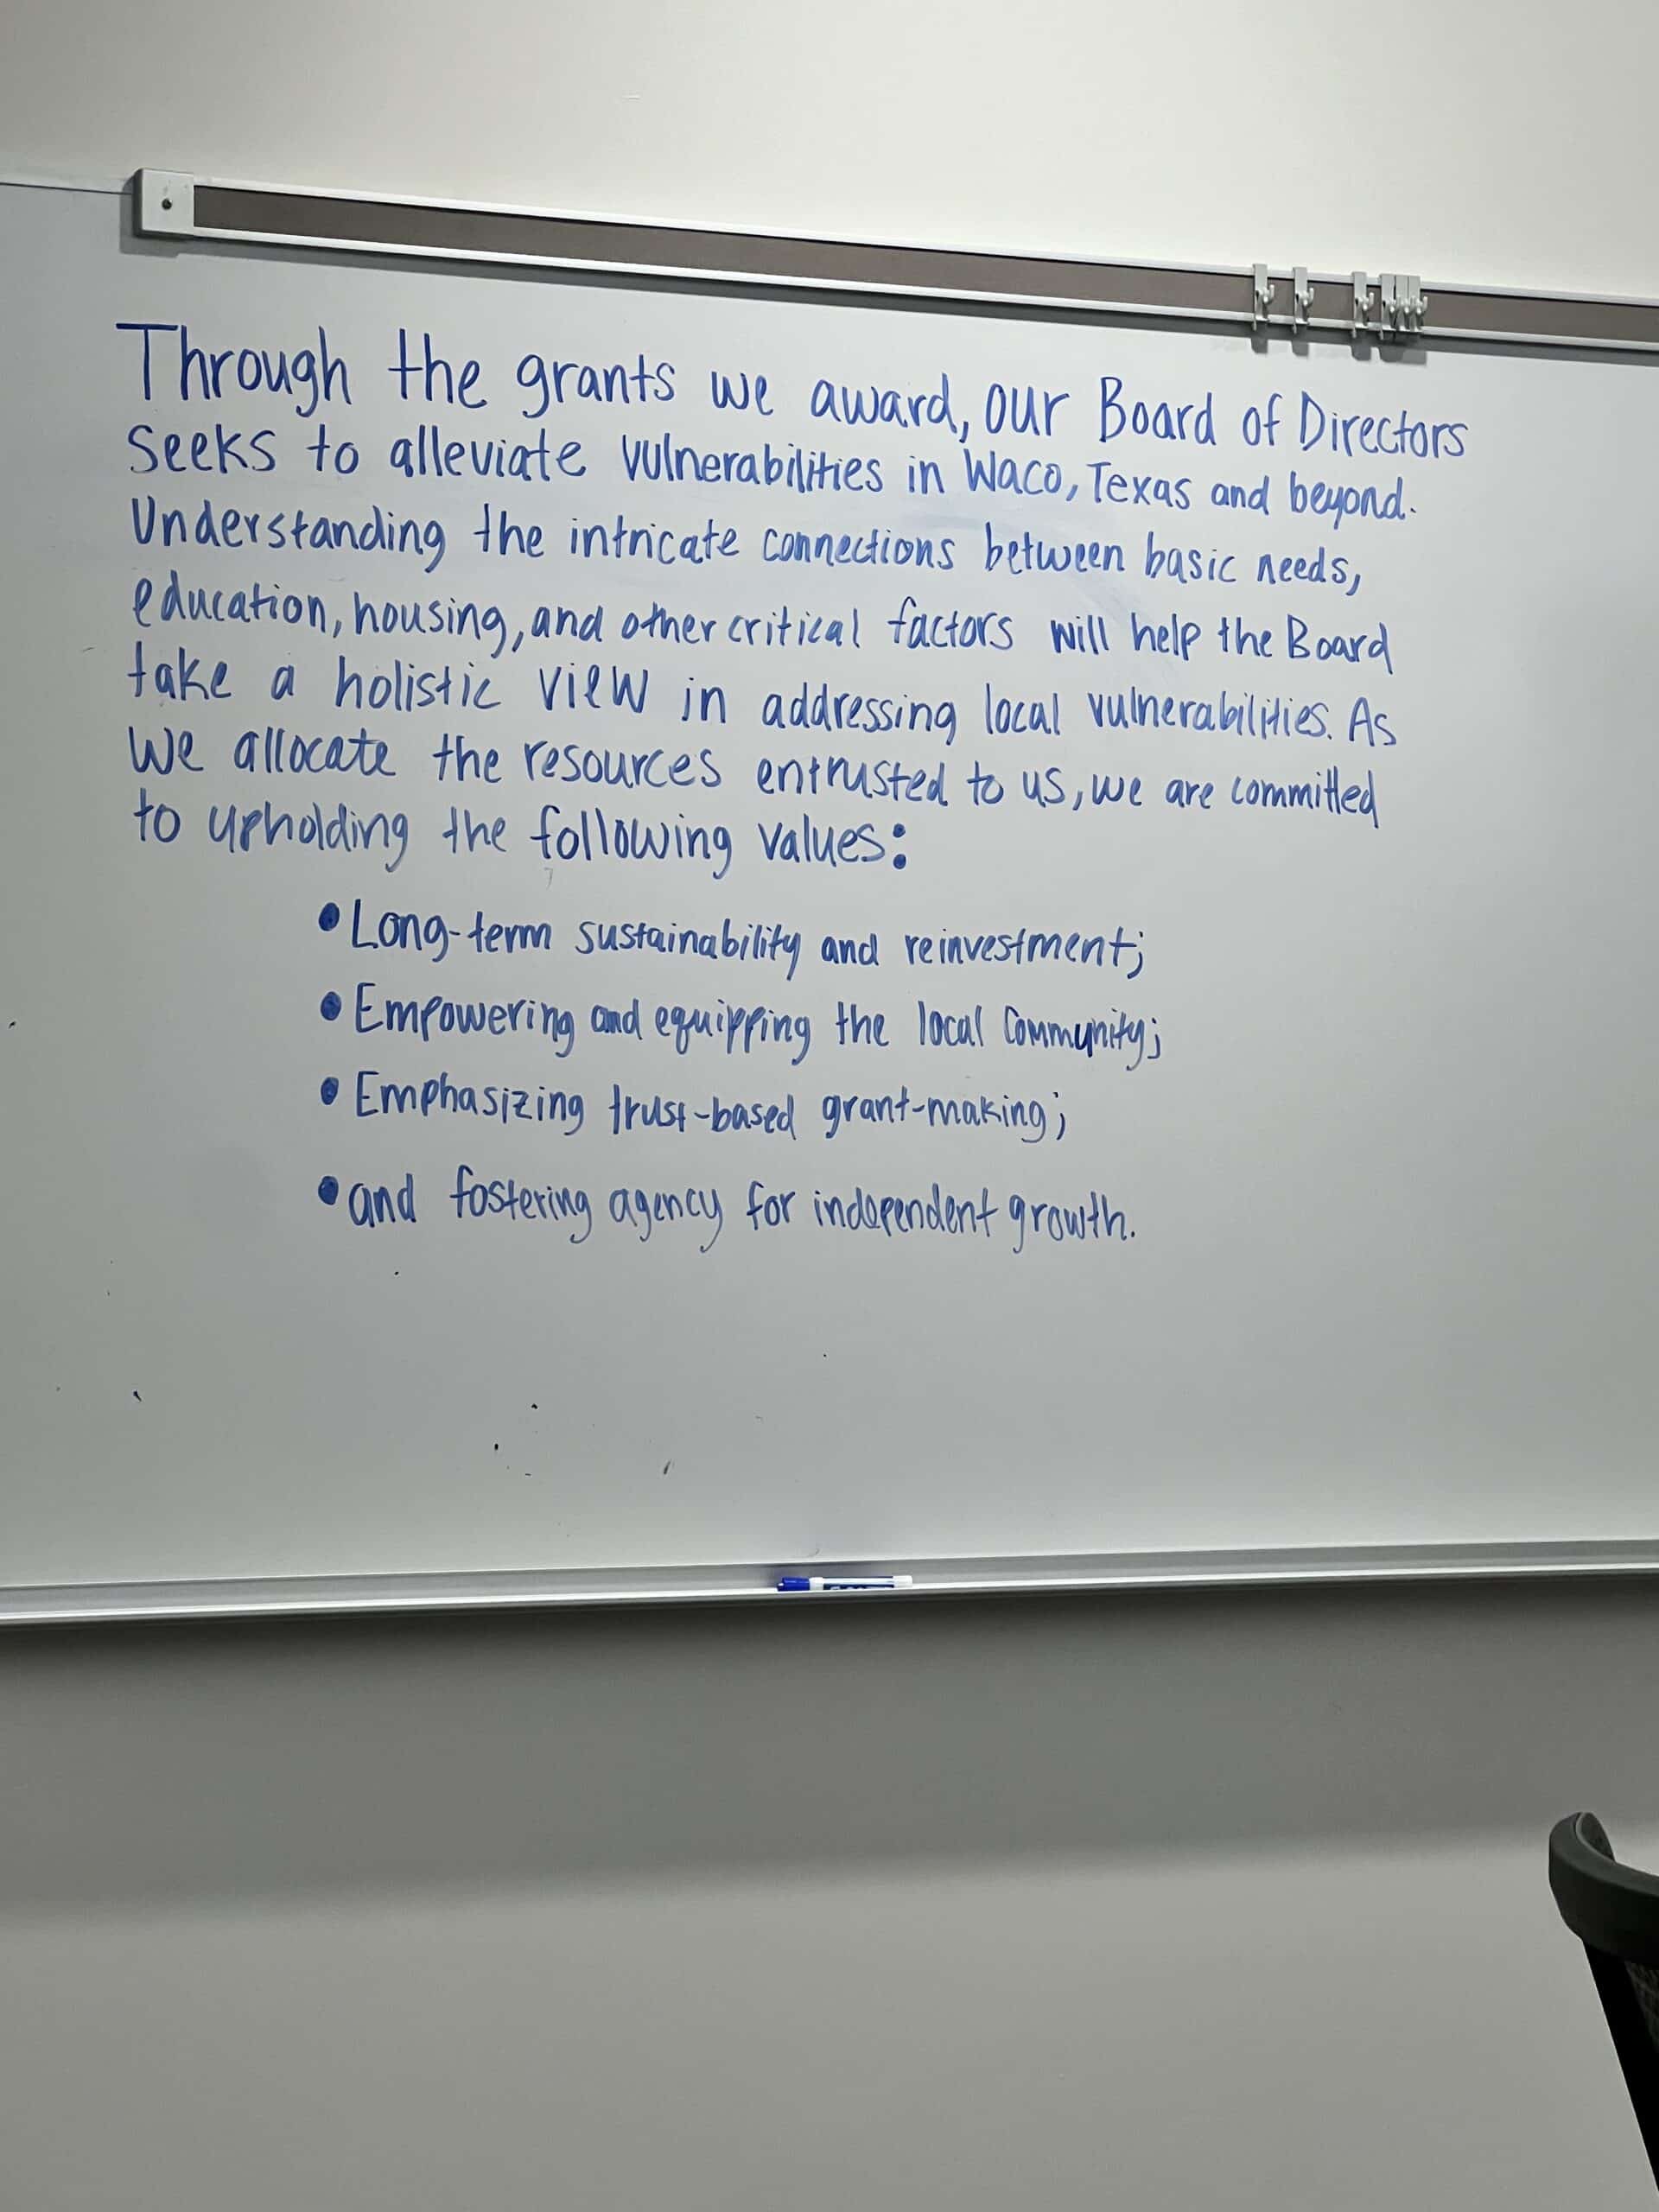 Through the grants we award, our Board of Directors
seeks to alleviate vulnerabilities in Waco, Texas and beyond.
Understanding the intricate connections between basic needs,
education, housing, and other critical factors will help the Board
take a holistic view in addressing local vulnerabilities. As
we allocate the resources entrusted to us, we are committed
to upholding the following values:
• Long-term sustainability and reinvestment;
• Empowering and equipping the local community;
• Emphasizing trust-based grant-making;
• and fostering agency for independent growth.